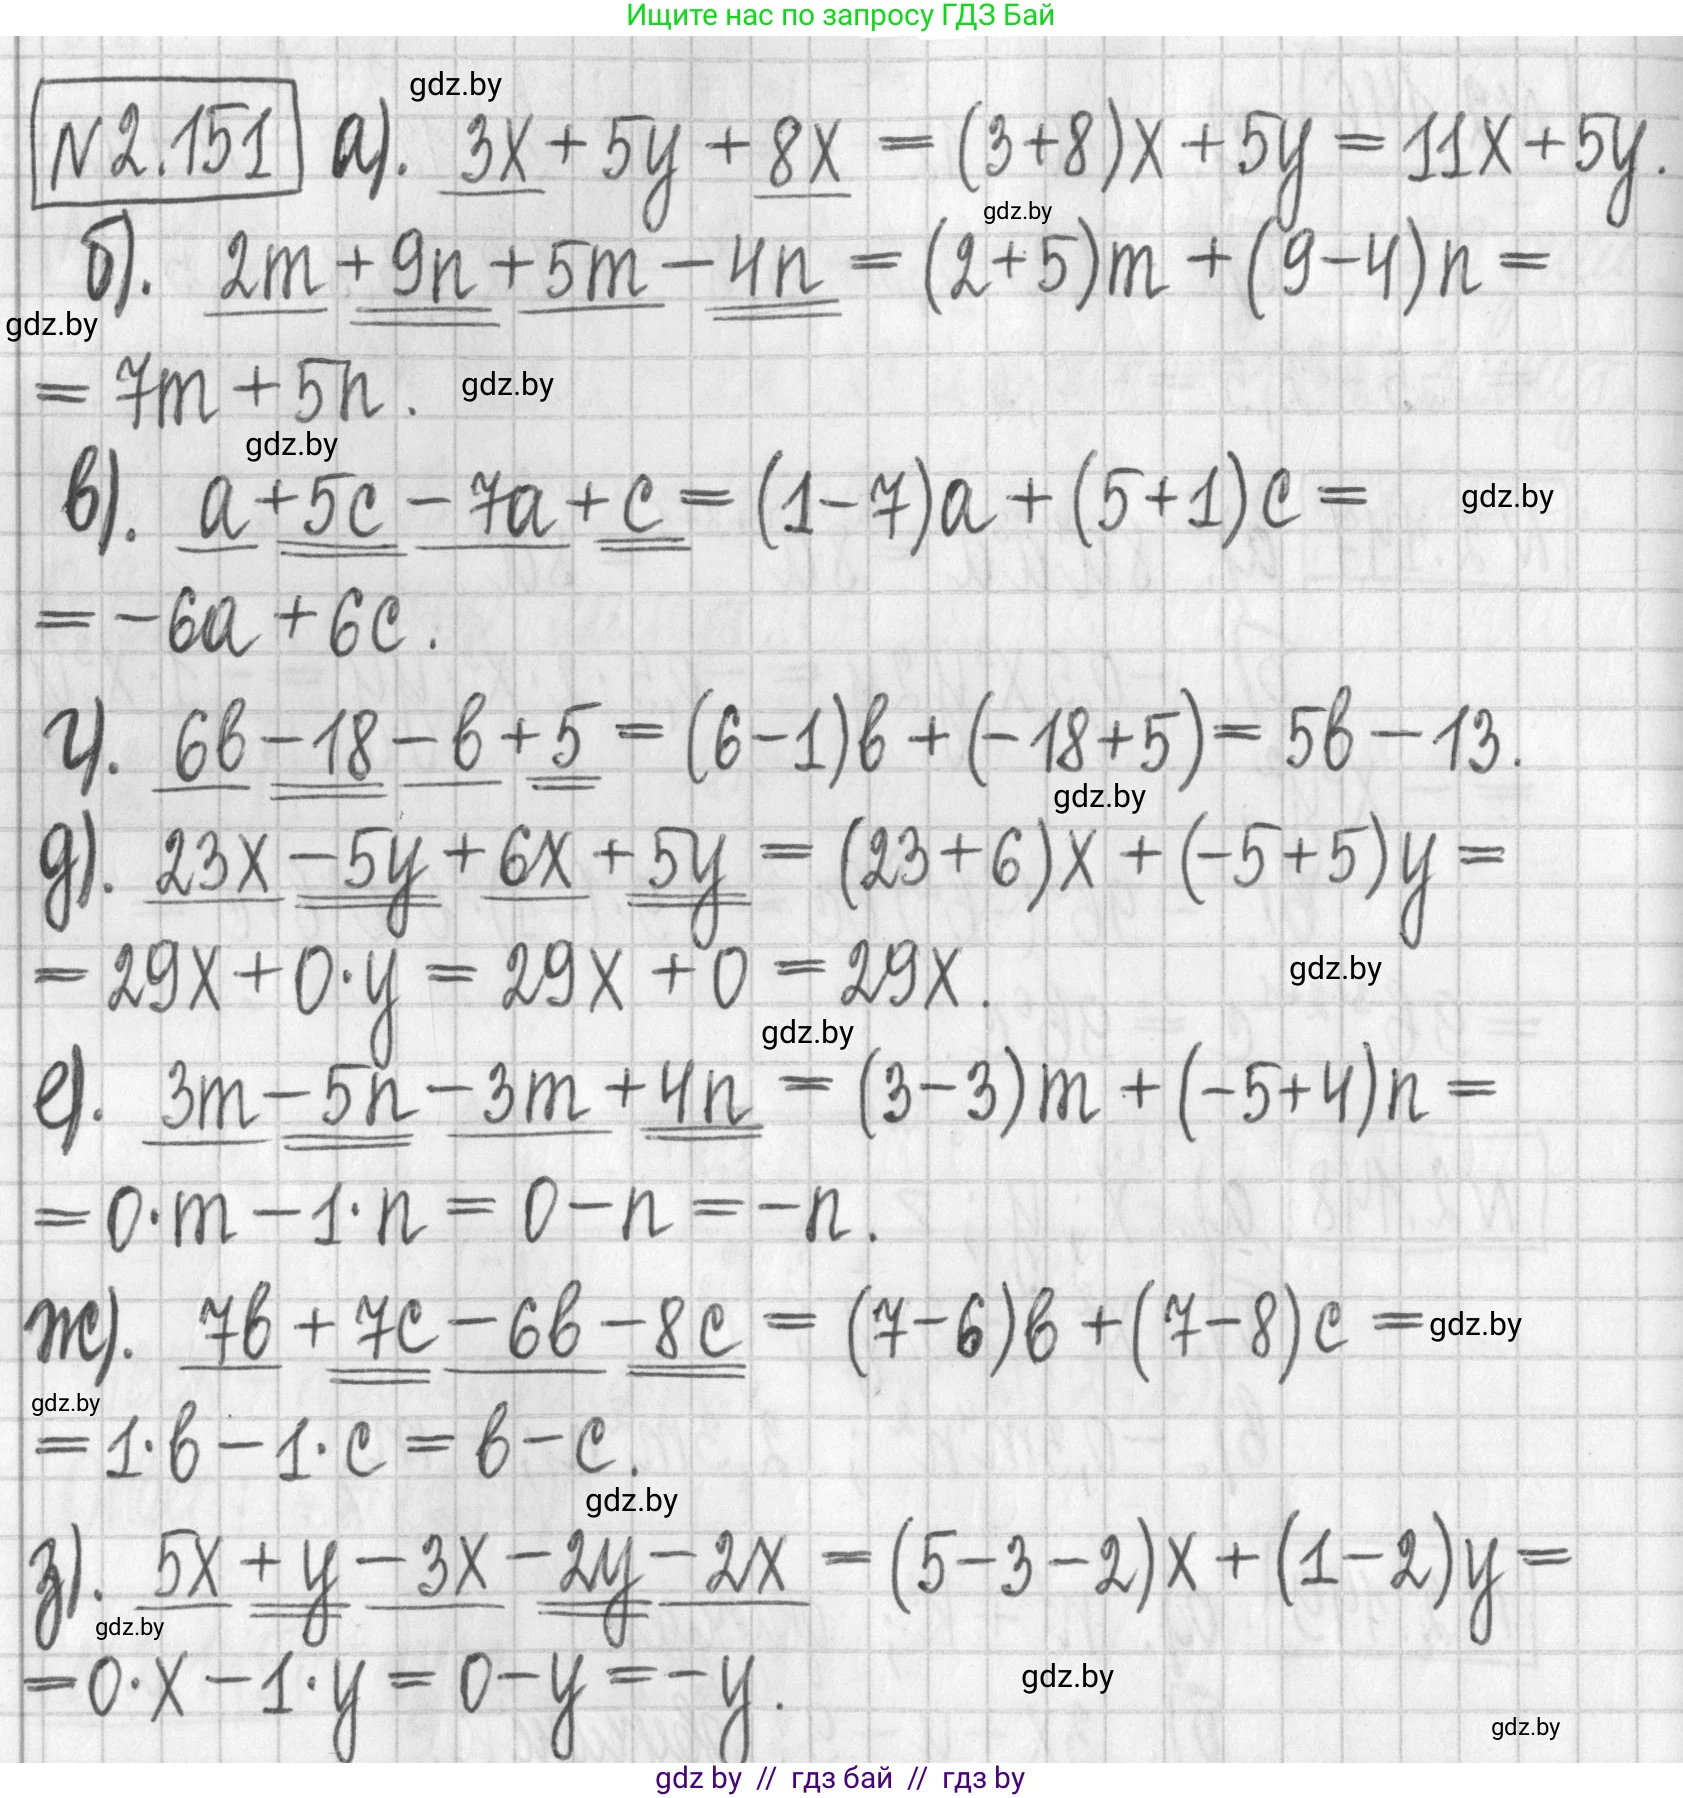 Ищите нас по запросу ГДЗ Бай
gdz.by
N2.151 а). 3x + 5y + 8x = (3+8)x + 5y = 11x + 5y.
gdz.by
б). 2m + 9n + 5m - 4n = (2+5)m + (9-4)n =
gdz.by
= 7m + 5n. gdz.by
gdz.by
в). a + 5c - 7a + c = (1-7)a + (5+1)c = gdz.by
= -6a + 6c.
г). 6b - 18 - b + 5 = (6-1)b + (-18+5) = 5b - 13.
gdz.by
д). 23x - 5y + 6x + 5y = (23+6)x + (-5+5)y =
= 29x + 0·y = 29x + 0 = 29x. gdz.by
gdz.by
е). 3m - 5n - 3m + 4n = (3-3)m + (-5+4)n =
= 0·m - 1·n = 0 - n = -n.
ж). 7b + 7c - 6b - 8c = (7-6)b + (7-8)c = gdz.by
gdz.by
= 1·b - 1·c = b - c.
gdz.by
з). 5x + y - 3x - 2y - 2x = (5-3-2)x + (1-2)y =
gdz.by
= 0·x - 1·y = 0 - y = -y. gdz.by
gdz.by
gdz by // гдз бай // гдз by